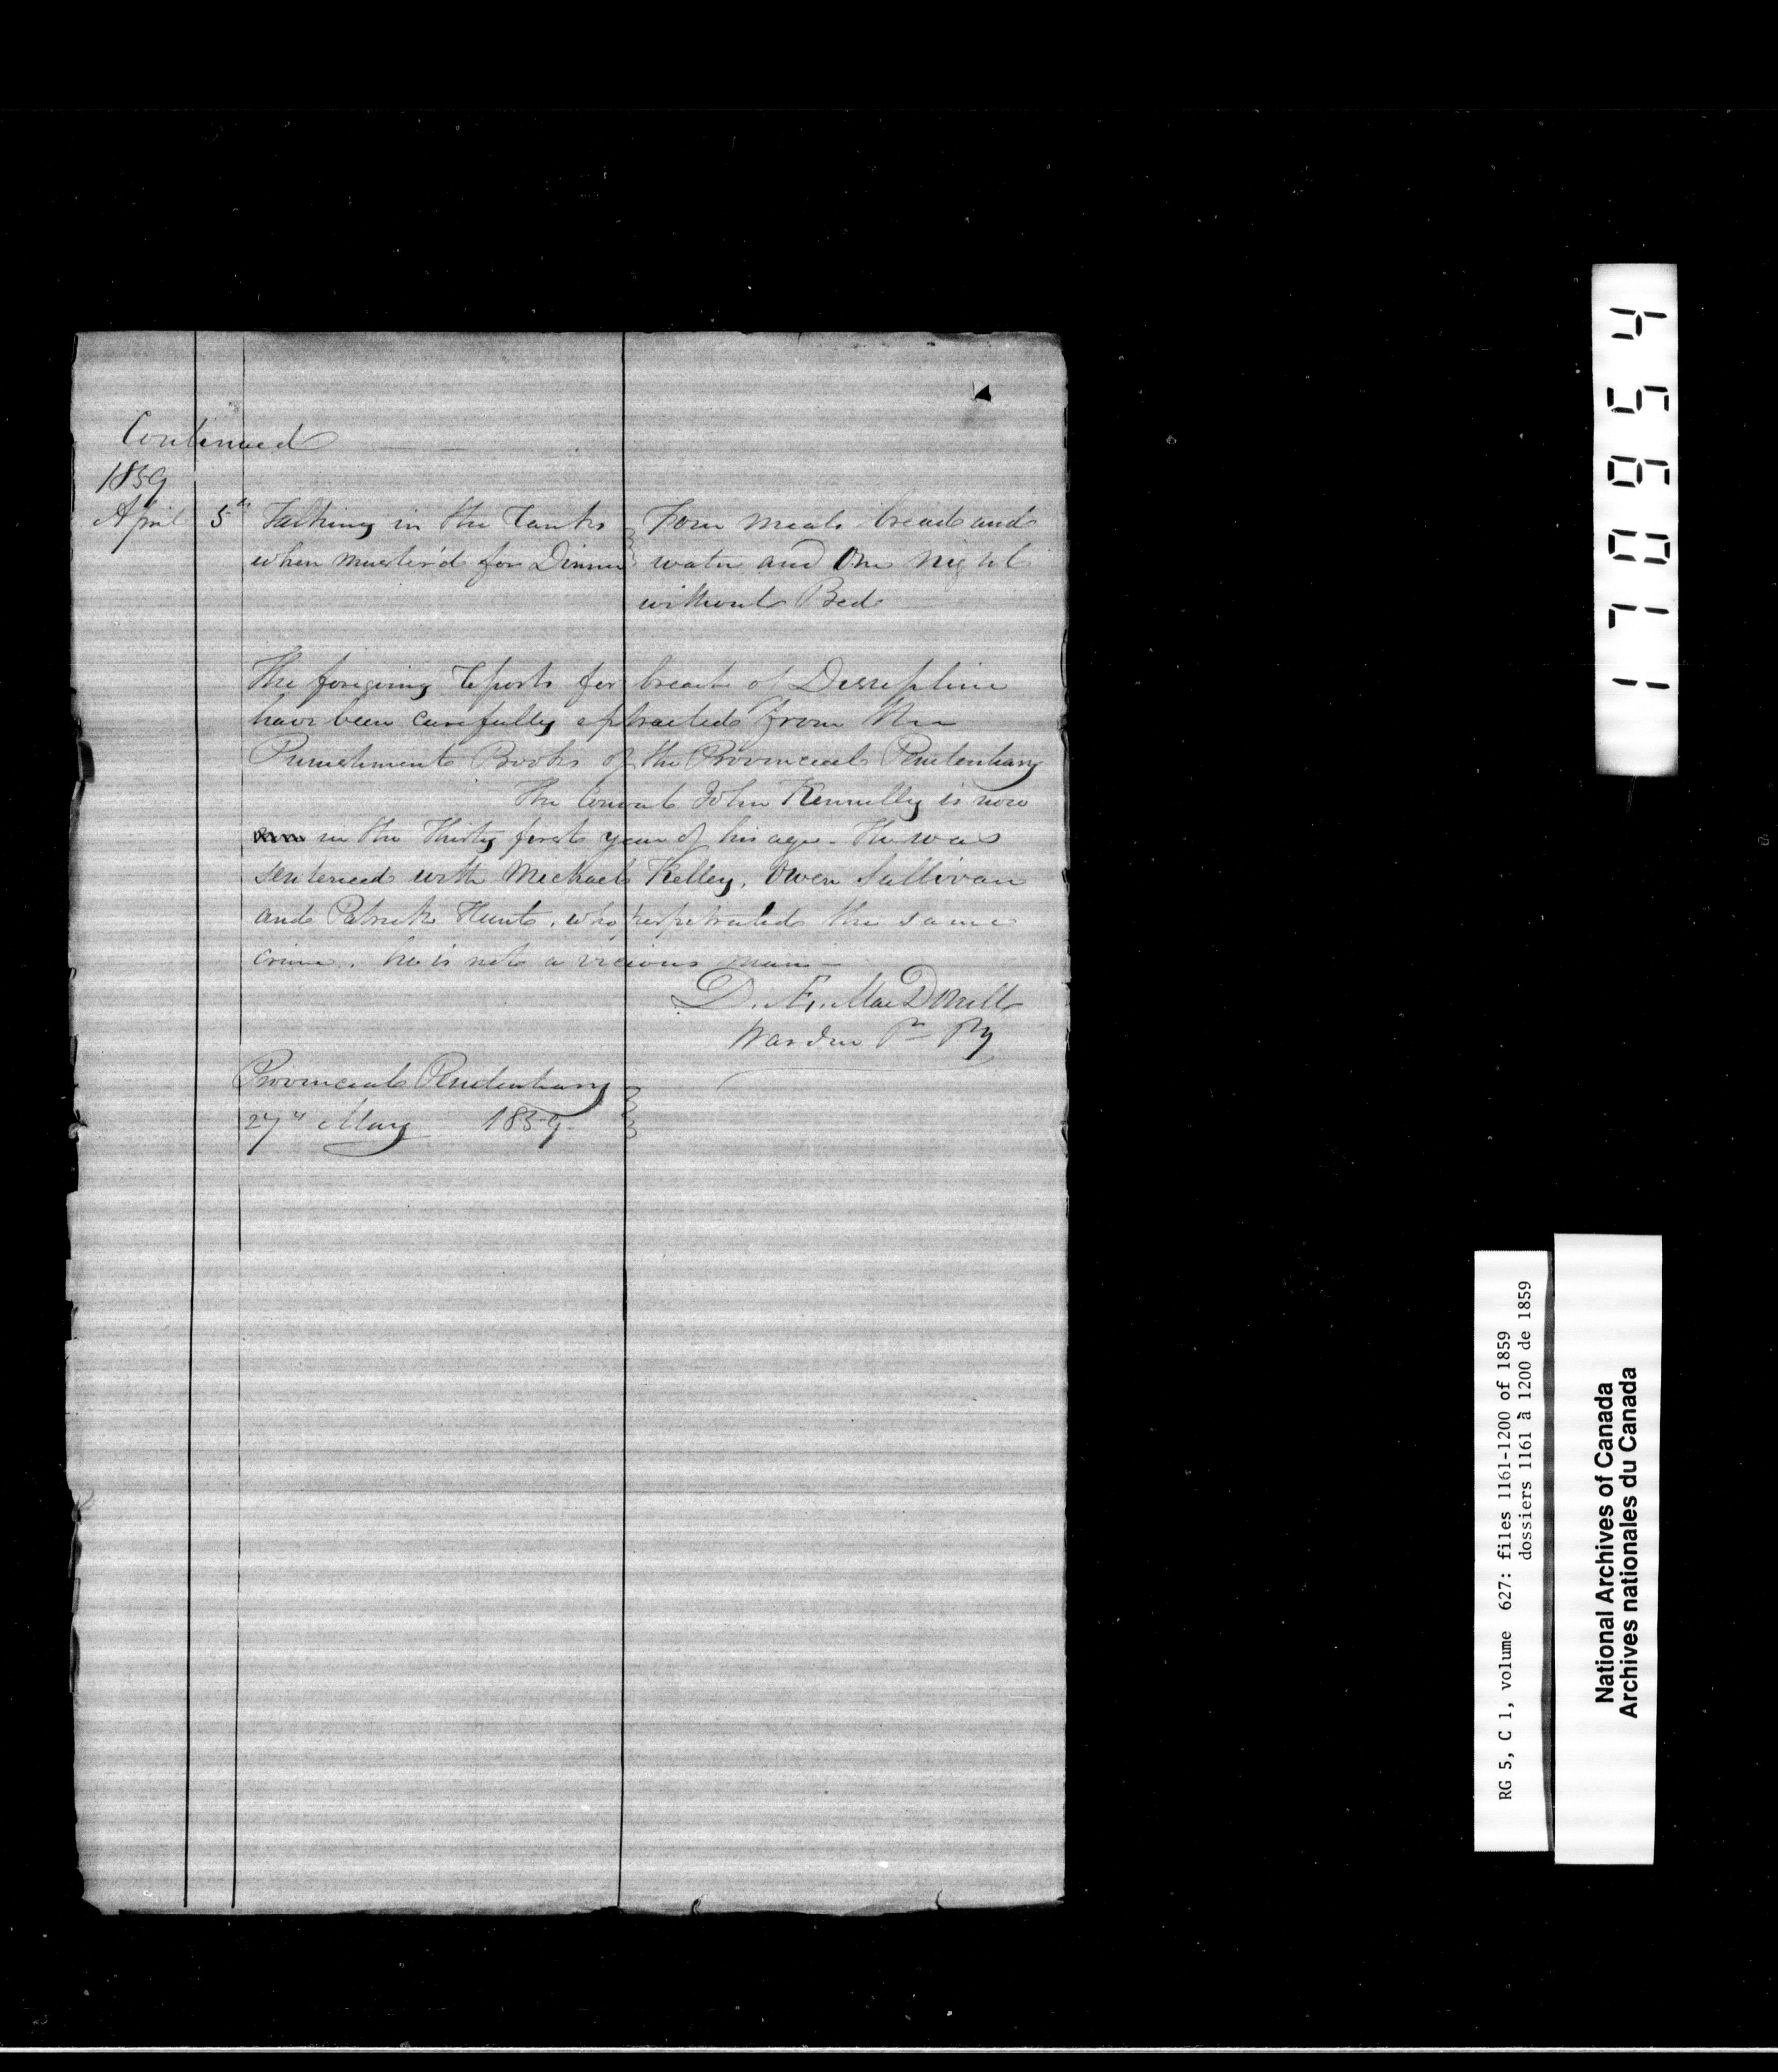 Continued
1859
April 5th Talking in the Ranks Four meals bread and
when muster'd for Dinner water and One night
without Bed
The foregoing reports for breach of Disscipline
have been carefully extracted from the
Punishment Books of the Provincial Penitentiary
The Convict John Kennelly is now
in the Thirty first year of his age. He was
sentenced with Michael Kelley, Owen Sullivan
and Patrick Hunt, who perpetrated the same
crime. he is not a vicious man —
D. Æ. Mac Donell
Warden P— Py
Provincial Penitentiary
27th May 1859
170954
RG 5, C 1, volume 627: files 1161-1200 of 1859
dossiers 1161 à 1200 de 1859
National Archives of Canada
Archives nationales du Canada